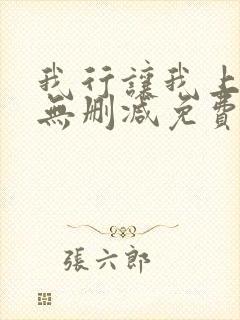 我行讓我上
無刪減免費
張六郎